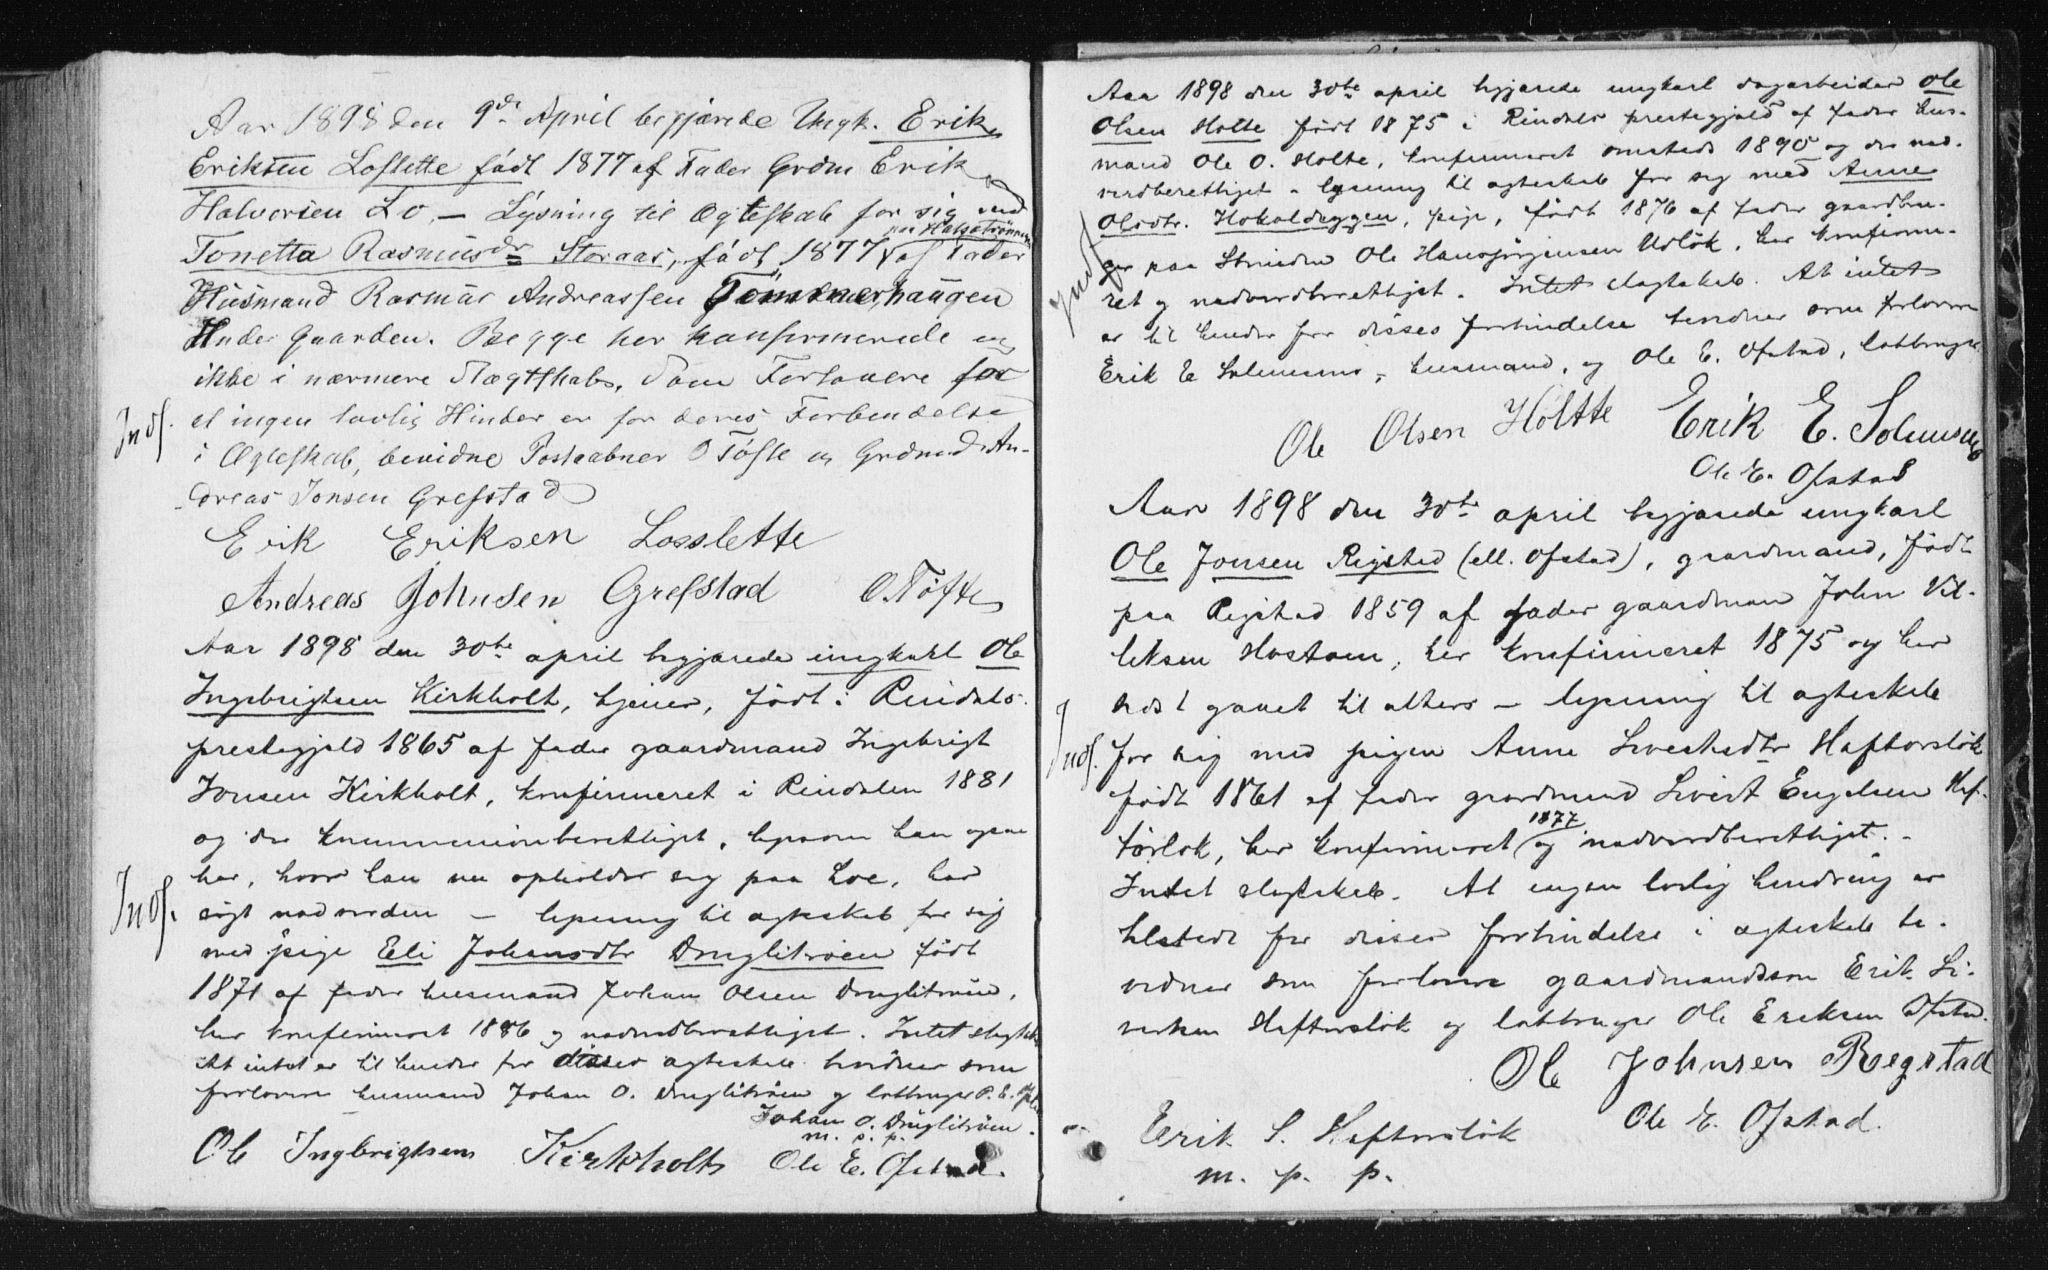 Aar 1898 den 9de April begjærede Ungk. Erik
Eriksen Loslette født 1877 af Fader Grdm Erik
Halvorsen Lo, — Lysning til Ægteskab for sig med
paa Halsetrønningen
Tonetta Rasmusdr Storaas, født 1877 af Fader
Husmand Rasmus Andreassen Tømmerhaugen
Under Gaarden. Begge her konfirmerede og
ikke i nærmere Slægtskab. Som Forlovere for
at ingen lovlig Hinder er for deres Forbindelse
Indf.
i Ægteskab, bevidne Postaabner O Tøfte og Grdmd. An-
dreas Jonsen Grefstad
Erik Eriksen Losslette
Andreas Johnsen Grefstad O. Tøfte
Aar 1898 den 30te april begjærede ungkarl Ole
Ingebrigtsen Kirkholt, tjener, født i Rindals
prestegjeld 1865 af fader gaardmand Ingebrigt
Jonsen Kirkholt, konfirmeret i Rindalen 1881
og der kommunionberettiget, ligesom han ogsaa
her, hvor han nu opholder sig paa Loe, har
Indf.
søgt nadverden — lysning til ægteskab for sig
med pige Eli Johansdtr Druglitrøen født
1871 af fader husmand Johan Olsen Druglitrøen,
her konfirmeret 1886 og nadverdberettiget. Intet slægtskab
At intet er til hinder for disses ægteskab bevidner som
forlovere husmand Johan O. Druglitrøen og lotbruger
Johan O. Druglitrøen.
m. p. p.
Ole Ingbrigtsen Kirkholt Ole E. Ofstad.
Aar 1898 den 30te april begjærede ungkarl dagarbeider Ole
Olsen Holte født 1875 i Rindals prestegjeld af fader hus-
mand Ole O. Holte, konfirmeret omsteds 1890 og der nad-
verdberettiget – lysning til ægteskab for sig med Anne
Olsdtr. Hokaldryggen, pige, født 1876 af fader gaardbru-
Indf
ger paa Ole Hansjørginsen Utløk, her konfirme-
ret og nadverdberettiget. Intet slægtskab. At intet
er til hinder for disses forbindelse bevidner som forlovere
Erik E Solemsmo, husmand, og Ole E. Ofstad, lotbruger
Ole Olsen Holtte Erik E. Solemsmo
Ole E. Ofstad
Aar 1898 den 30te april begjærede ungkarl
Ole Jonsen Rigstad (ell. Ofstad), gaardmand, født
paa Rigstad 1859 af fader gaardman John Vil-
leksen Hostoen, her konfirmeret 1875 og her
sidst gaaet til alters — lysning til ægteskab
Indf.
for sig med pigen Anne Sivertsdtr Haftorsløk
født 1861 af fader gaardmand Sivert Engelsen Haf-
1877
torløk, her konfirmeret og nadverdberettiget. –
Intet slegtskab. At ingen lovlig hindring er
tilstede for disses forbindelse i ægteskab be-
vidner som forlovere gaardmandssøn Erik Si-
vertsen Haftorsløk og lotbruger Ole Eriksen Ofstad.
Ole Johnsen Regstad
Erik S. Haftorsløk Ole E. Ofstad.
m. p. p.